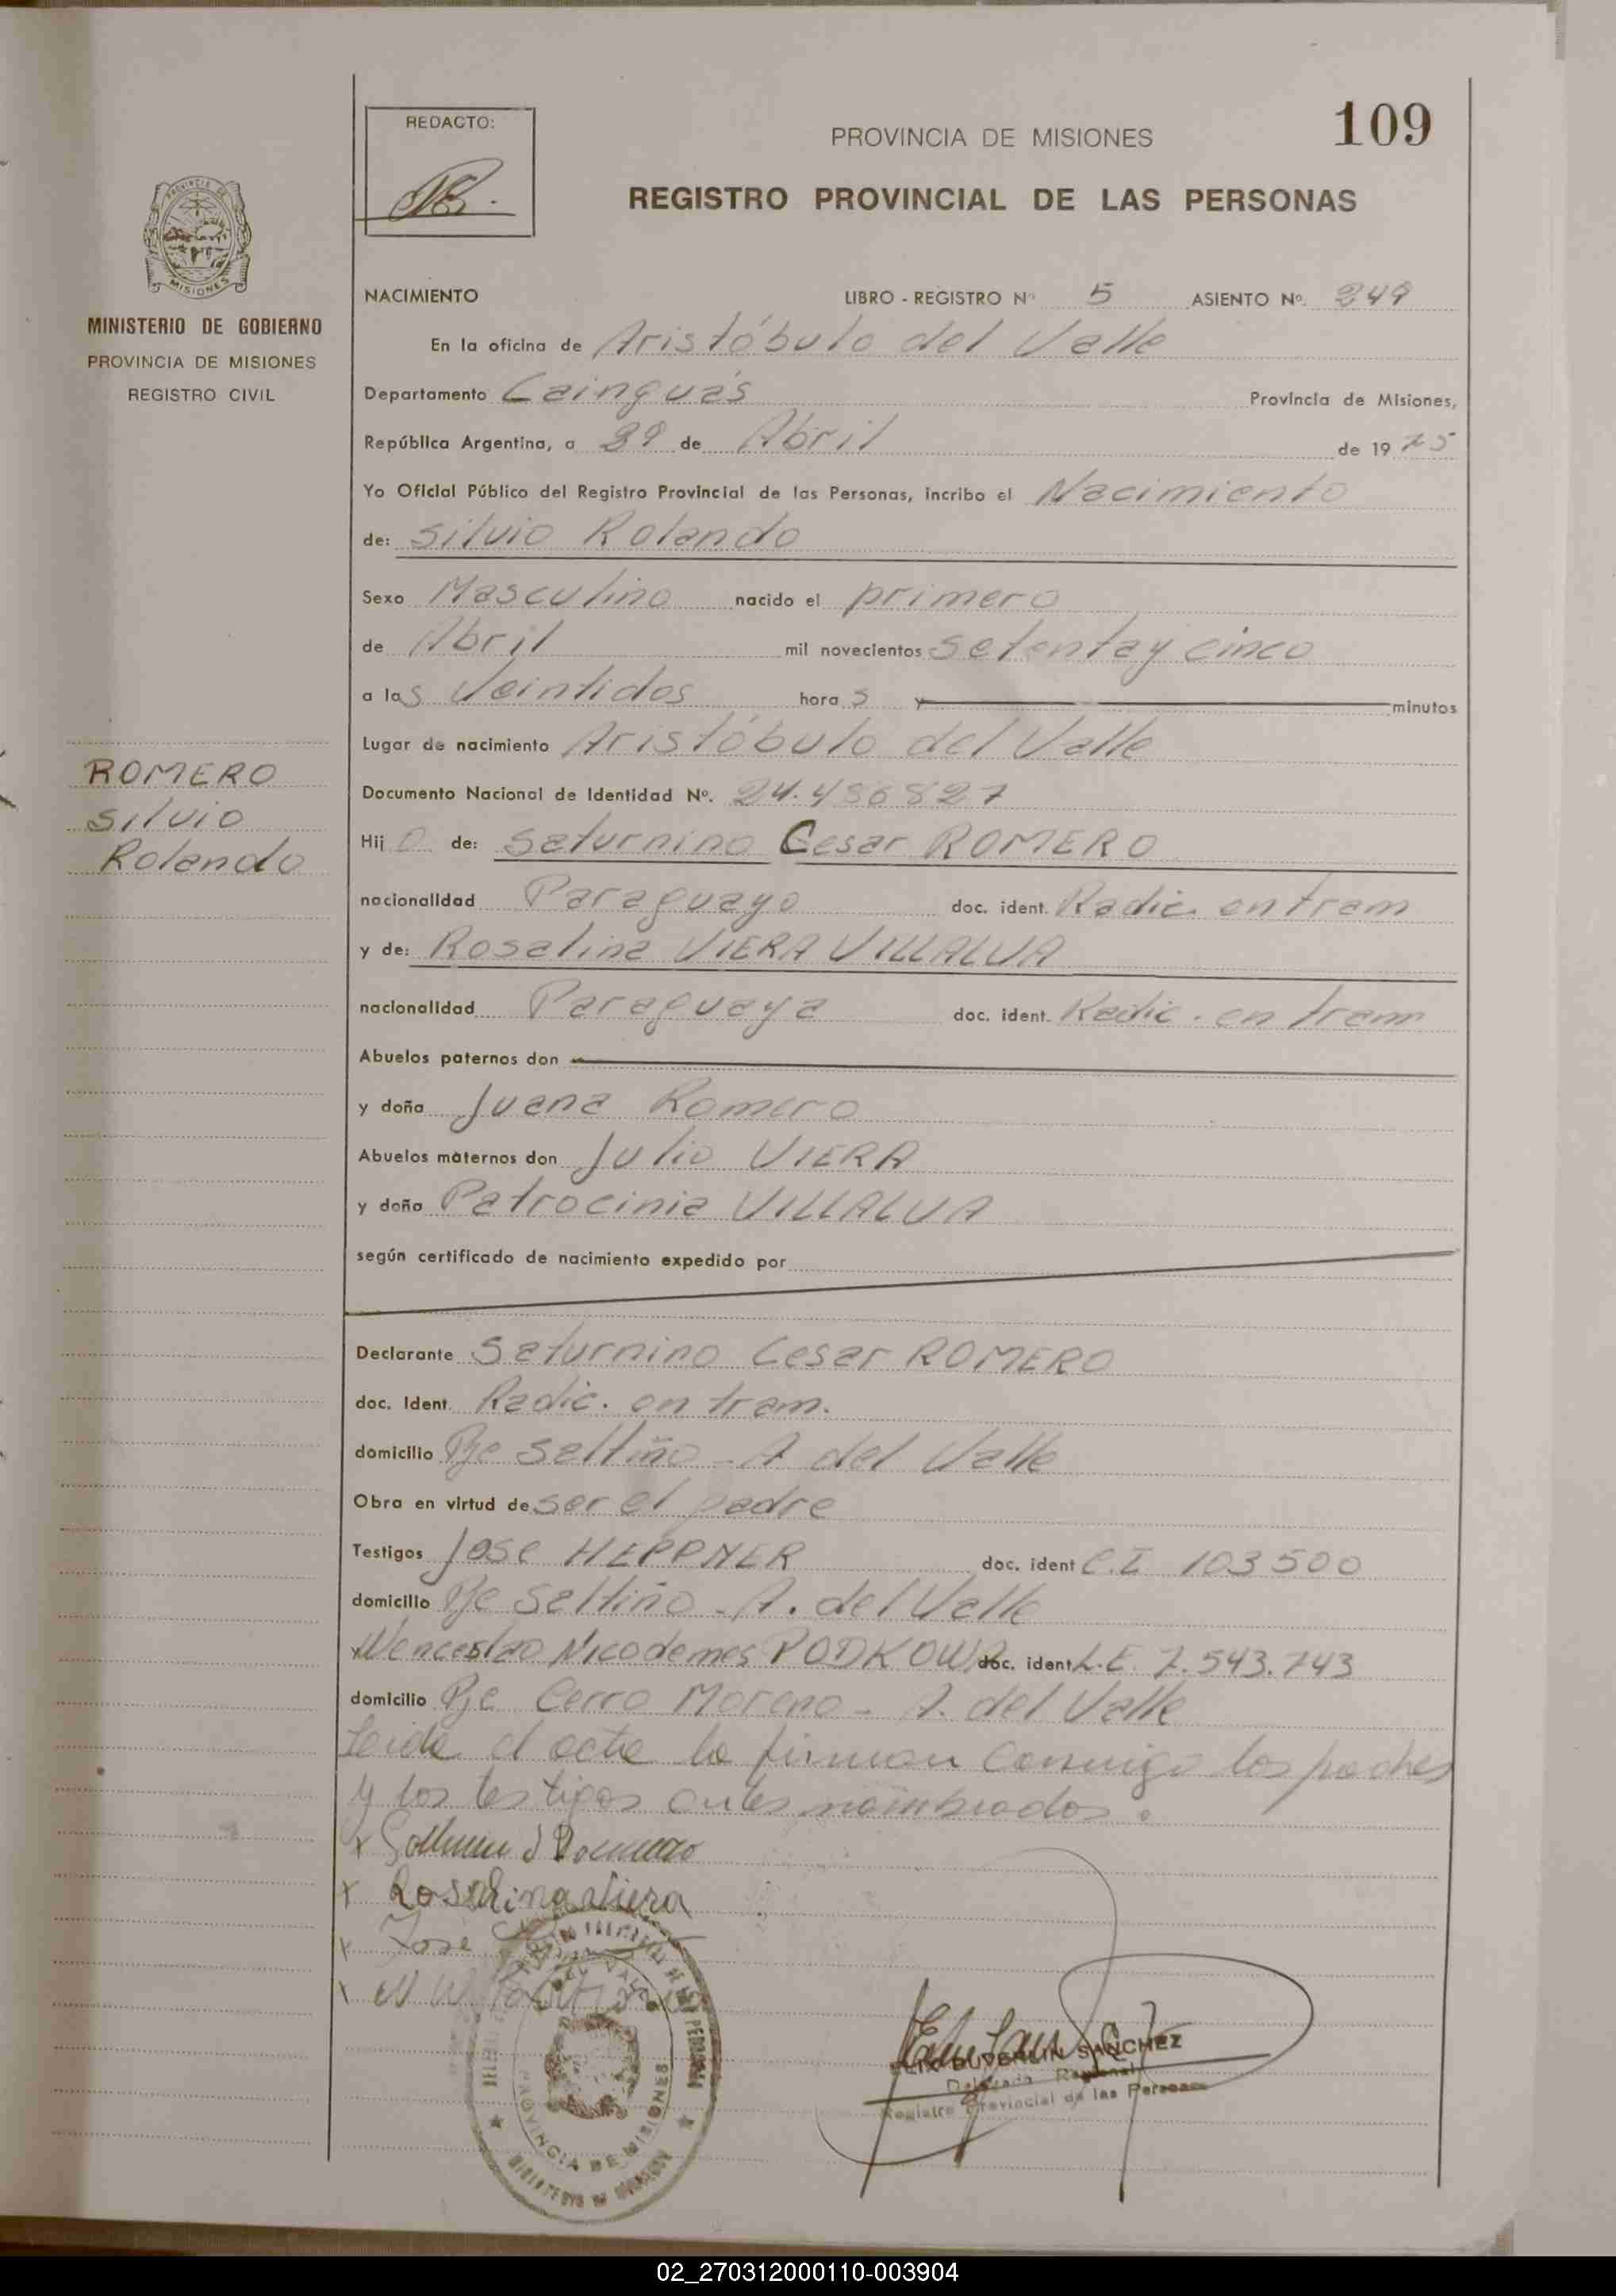 109
REDACTO:
PROVINCIA DE MISIONES
REGISTRO PROVINCIAL DE LAS PERSONAS
MINISTERIO DE GOBIERNO
PROVINCIA DE MISIONES
REGISTRO CIVIL
ROMERO
Silvio
Rolando
NACIMIENTO LIBRO - REGISTRO Nº 5 ASIENTO Nº. 249
En la oficina de Aristóbulo del Valle
Departamento Cainguás Provincia de Misiones,
República Argentina, a de Abril de 1975
Yo Oficial Público del Registro Provincial de las Personas, incribo el Nacimiento
de: Silvio Rolando
Sexo Masculino nacido el primero
de Abril mil novecientos setenta y cinco
a las Veintidos horas minutos
Lugar de nacimiento Aristóbulo del Valle
Documento Nacional de Identidad Nº. 24.486827
Hijo de: Saturnino Cesar ROMERO
nacionalidad Paraguayo doc. ident. Radic. en tram
y de: Rosalina VIERA VILLALUA
nacionalidad Paraguaya doc. ident. Radic. en tram
Abuelos paternos don
y doña Juana Romero
Abuelos maternos don Julio VIERA
y doña Patrocinia VILLALUA
según certificado de nacimiento expedido por
Declarante Saturnino Cesar ROMERO
doc. Ident. Radic. en tram.
domicilio Pje Saltiño - A del Valle
Obra en virtud de ser el padre
Testigos Jose HEPPNER doc. ident C.I 103500
domicilio Pje Saltiño - A. del Valle
y Wenceslao Nicodemes PODKOWA doc. ident L.E. 7.543.743
domicilio Pje Cerro Moreno - A. del Valle
Leida el acta la firman conmigo los padres
y los testigos antes nombrados.
x Romero
x Rosalina Viera
x Jose
x
PROVINCIA DE MISIONES
SANCHEZ
Delegado Regional
Registro Provincial de las Personas
02_270312000110-003904